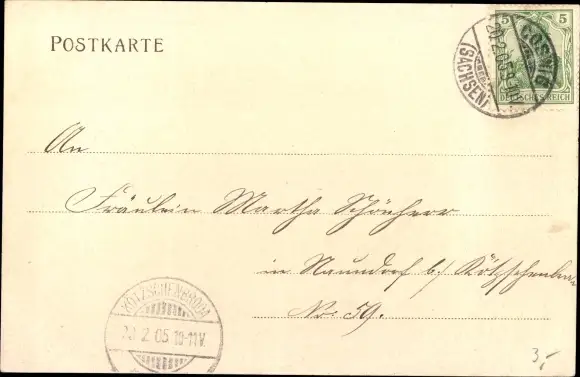 POSTKARTE
5 5
DEUTSCHES REICH
COSWIG
(SACHSEN)
20.2.05
An
Fräulein Martha Schönherr
in Naundorf b/ Kötzschenbr
No. 59.
KÖTZSCHENBRODA
2 05 10-11V.
3,-